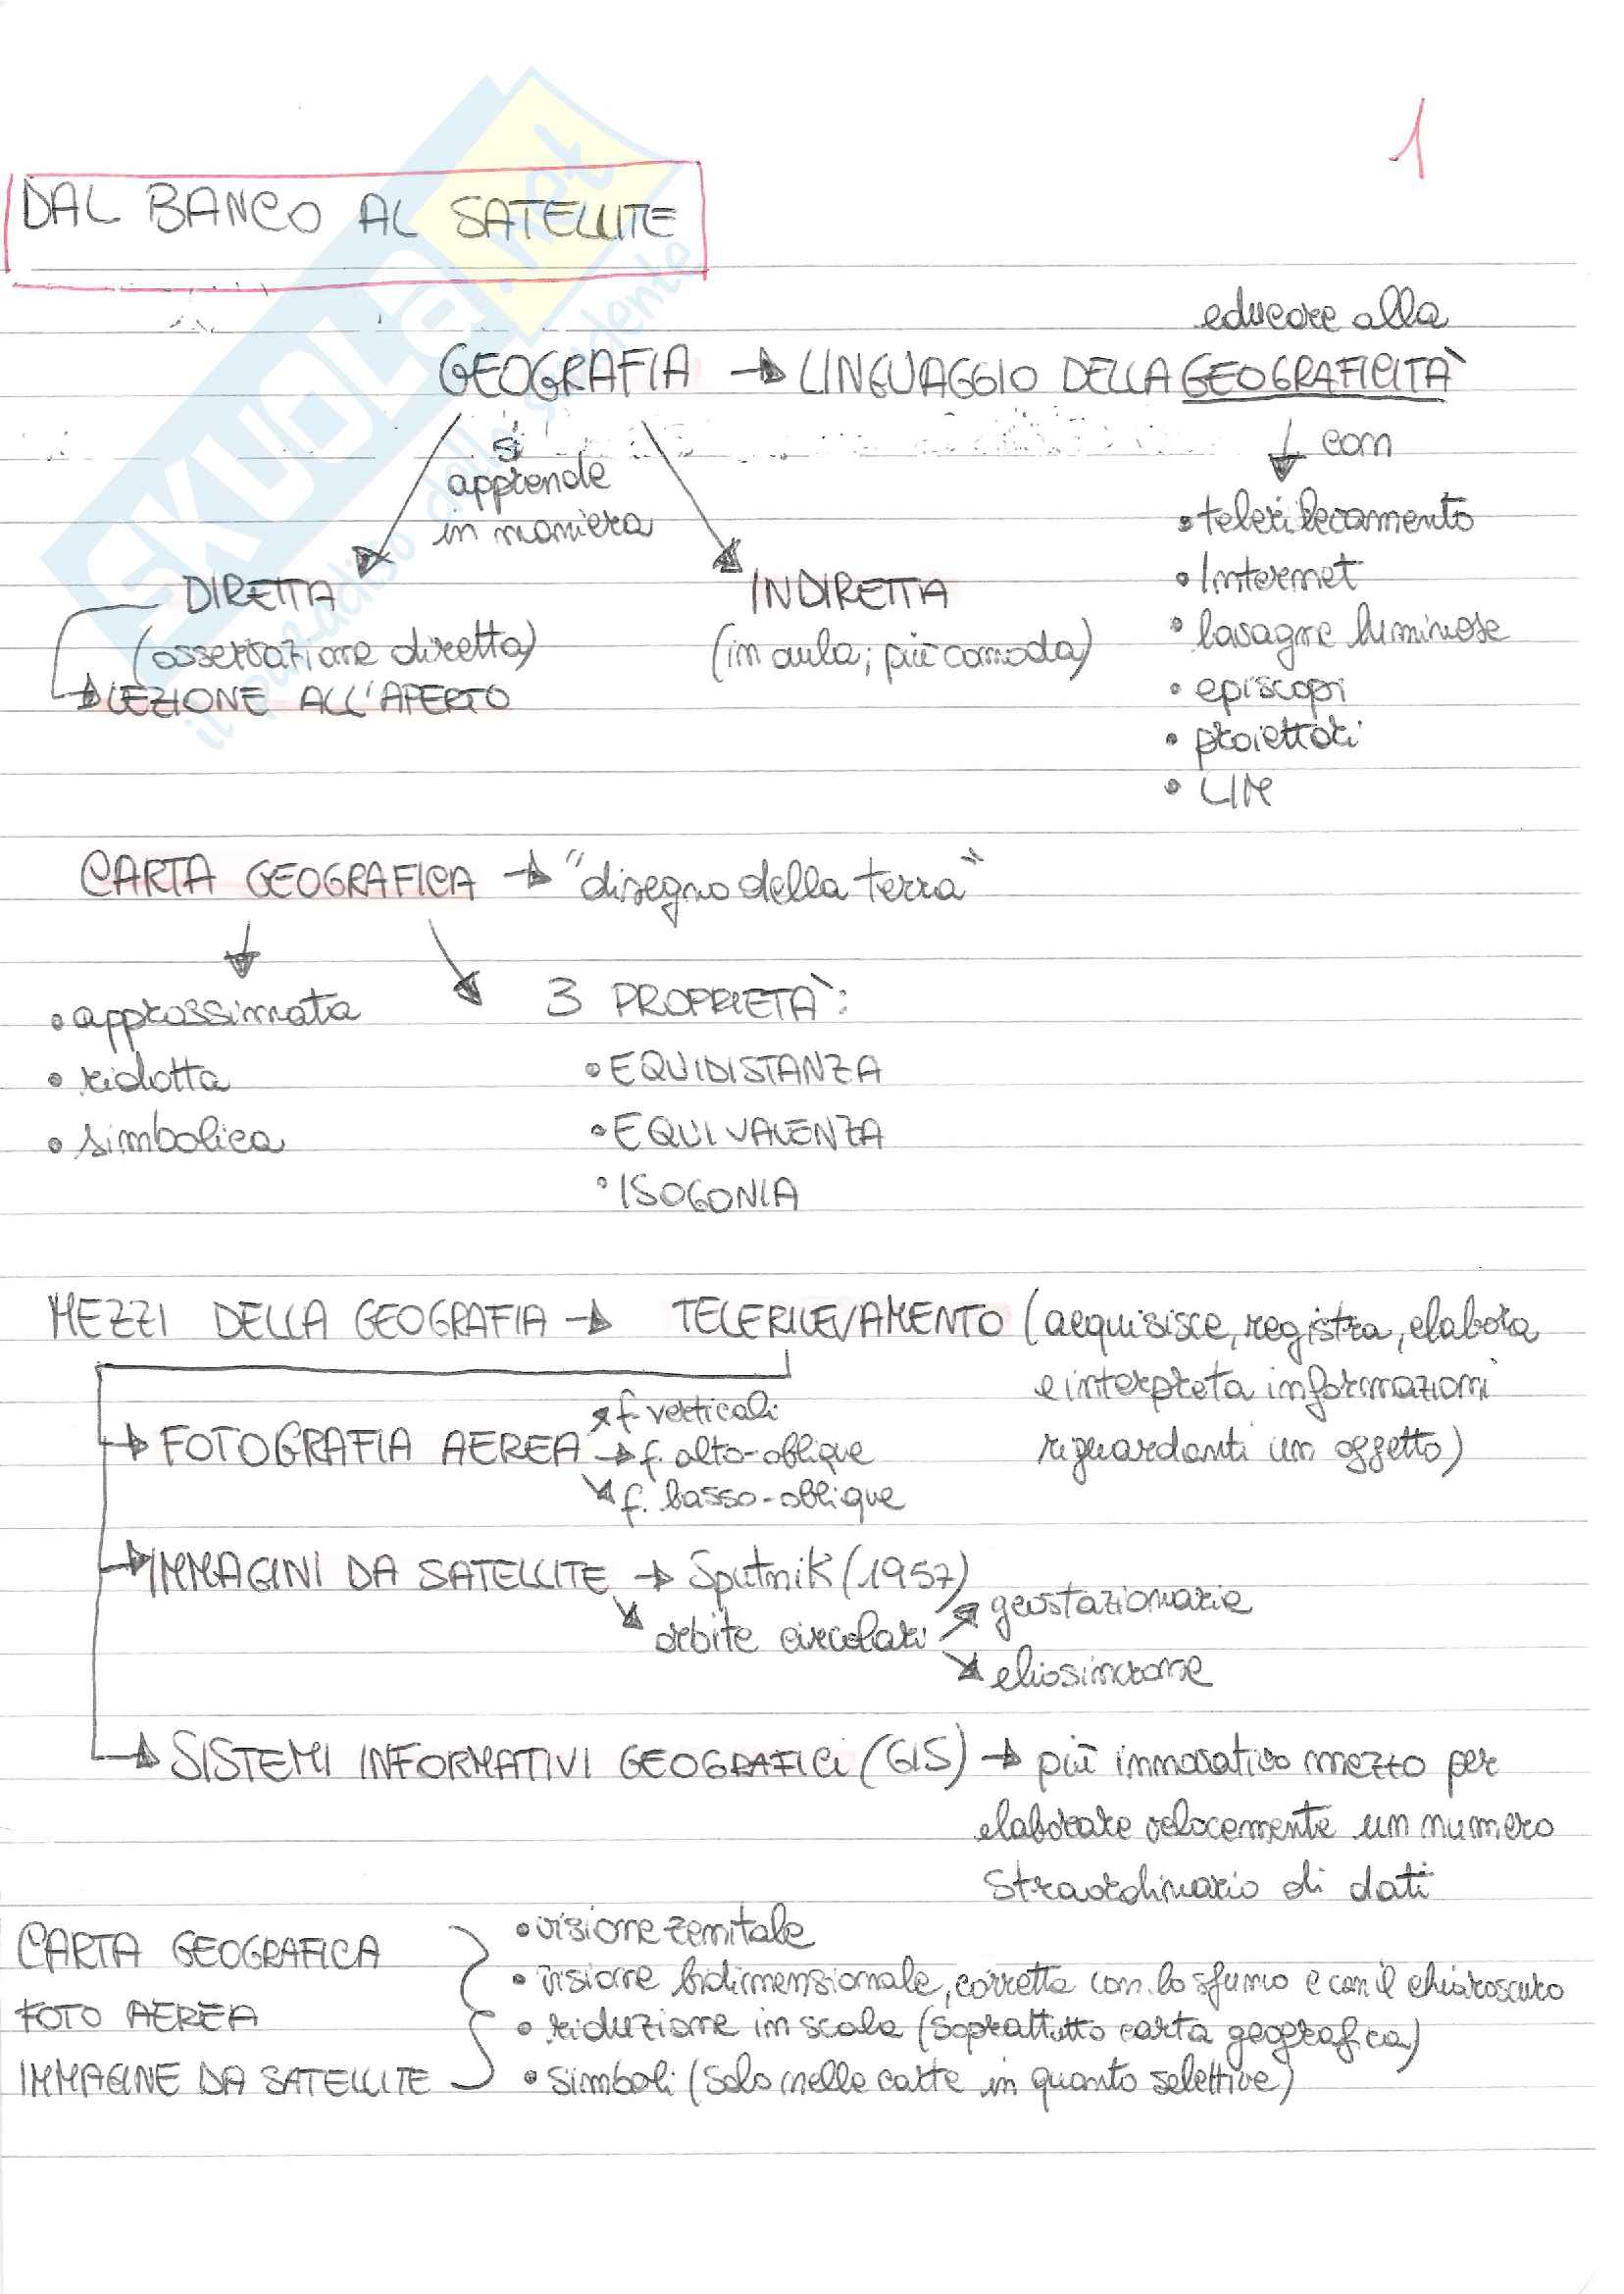 1
DAL BANCO AL SATELLITE
SKUOLA.net
il paradiso dello studente
educare alla
GEOGRAFIA → LINGUAGGIO DELLA GEOGRAFICITÀ
si
apprende
in maniera
con
• telerilevamento
• Internet
• lavagne luminose
• episcopi
• proiettori
• LIM
DIRETTA
(osservazione diretta)
→ LEZIONE ALL'APERTO
INDIRETTA
(in aula; più comoda)
CARTA GEOGRAFICA → "disegno della terra"
• approssimata
• ridotta
• simbolica
3 PROPRIETÀ:
• EQUIDISTANZA
• EQUIVALENZA
• ISOGONIA
MEZZI DELLA GEOGRAFIA → TELERILEVAMENTO (acquisisce, registra, elabora
e interpreta informazioni
riguardanti un oggetto)
→ FOTOGRAFIA AEREA
f. verticali
→ f. alto-oblique
f. basso-oblique
→ IMMAGINI DA SATELLITE → Sputnik (1957)
orbite circolari
geostazionarie
eliosincrone
→ SISTEMI INFORMATIVI GEOGRAFICI (GIS) → più innovativo mezzo per
elaborare velocemente un numero
straordinario di dati
CARTA GEOGRAFICA
FOTO AEREA
IMMAGINE DA SATELLITE
• visione zenitale
• visione bidimensionale, corretta con lo sfumo e con il chiaroscuro
• riduzione in scala (soprattutto carta geografica)
• simboli (solo nelle carte in quanto selettive)